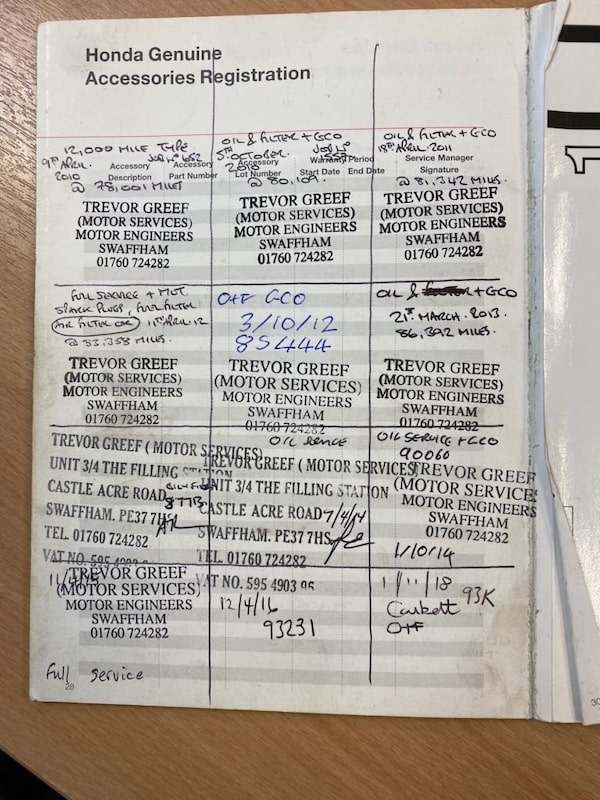 Honda Genuine
Accessories Registration
12,000 MILE TYPE
9TH APRIL. 2010
Accessory Description
Part Number
@ 78,001 MILES
TREVOR GREEF
(MOTOR SERVICES)
MOTOR ENGINEERS
SWAFFHAM
01760 724282
OIL & FILTER + GCO
5TH OCTOBER. 2010
Accessory Lot Number
Warranty Period
Start Date End Date
@ 80,109.
TREVOR GREEF
(MOTOR SERVICES)
MOTOR ENGINEERS
SWAFFHAM
01760 724282
OIL & FILTER + GCO
18TH APRIL 2011
Service Manager
Signature
@ 81,342 MILES
TREVOR GREEF
(MOTOR SERVICES)
MOTOR ENGINEERS
SWAFFHAM
01760 724282
FULL SERVICE + MOT.
SPARK PLUGS, FUEL FILTER
AIR FILTER OK 11TH APRIL 12
@ 83,358 MILES.
TREVOR GREEF
(MOTOR SERVICES)
MOTOR ENGINEERS
SWAFFHAM
01760 724282
O+F GCO
3/10/12
85444
TREVOR GREEF
(MOTOR SERVICES)
MOTOR ENGINEERS
SWAFFHAM
01760 724282
OIL & + GCO
21ST MARCH. 2013.
86,392 MILES.
TREVOR GREEF
(MOTOR SERVICES)
MOTOR ENGINEERS
SWAFFHAM
01760 724282
TREVOR GREEF ( MOTOR SERVICES)
UNIT 3/4 THE FILLING STATION
CASTLE ACRE ROAD
SWAFFHAM. PE37 7HS
TEL. 01760 724282
VAT NO. 595 4903
OIL
TREVOR GREEF ( MOTOR SERVICES)
UNIT 3/4 THE FILLING STATION
CASTLE ACRE ROAD 7/4/14
SWAFFHAM. PE37 7HS
TEL. 01760 724282
VAT NO. 595 4903 06
OIL SERVICE + GCO
90060
TREVOR GREEF
(MOTOR SERVICES
MOTOR ENGINEERS
SWAFFHAM
01760 724282
1/10/14
TREVOR GREEF
(MOTOR SERVICES)
MOTOR ENGINEERS
SWAFFHAM
01760 724282
Full service
12/4/16
93231
1/11/18
93K
O+F
28